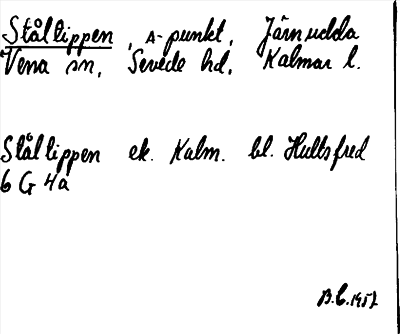 Ståltippen, A-punkt, Järnudda
Vena sn, Sevede hd, Kalmar l.
Ståltippen ek. Kalm. bl. Hultsfred
6 G 4a